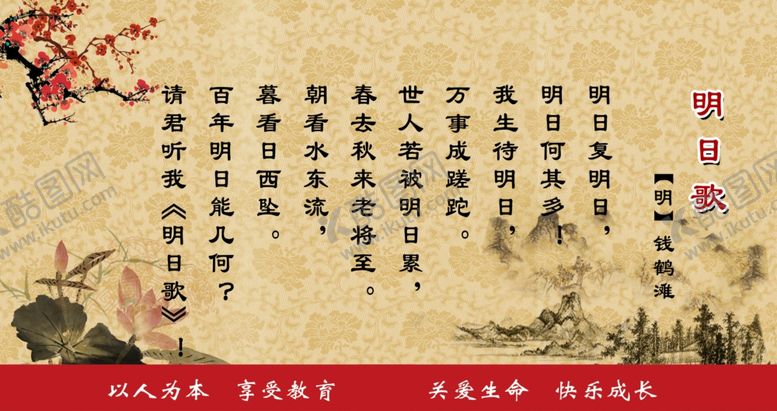 明日歌
【明】钱鹤滩
明日复明日，
明日何其多！
我生待明日，
万事成蹉跎。
世人若被明日累，
春去秋来老将至。
朝看水东流，
暮看日西坠。
百年明日能几何？
请君听我《明日歌》！
以人为本 享受教育 关爱生命 快乐成长
酷图网
www.ikutu.com